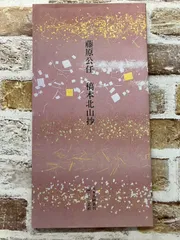 藤原公任 稿本北山抄